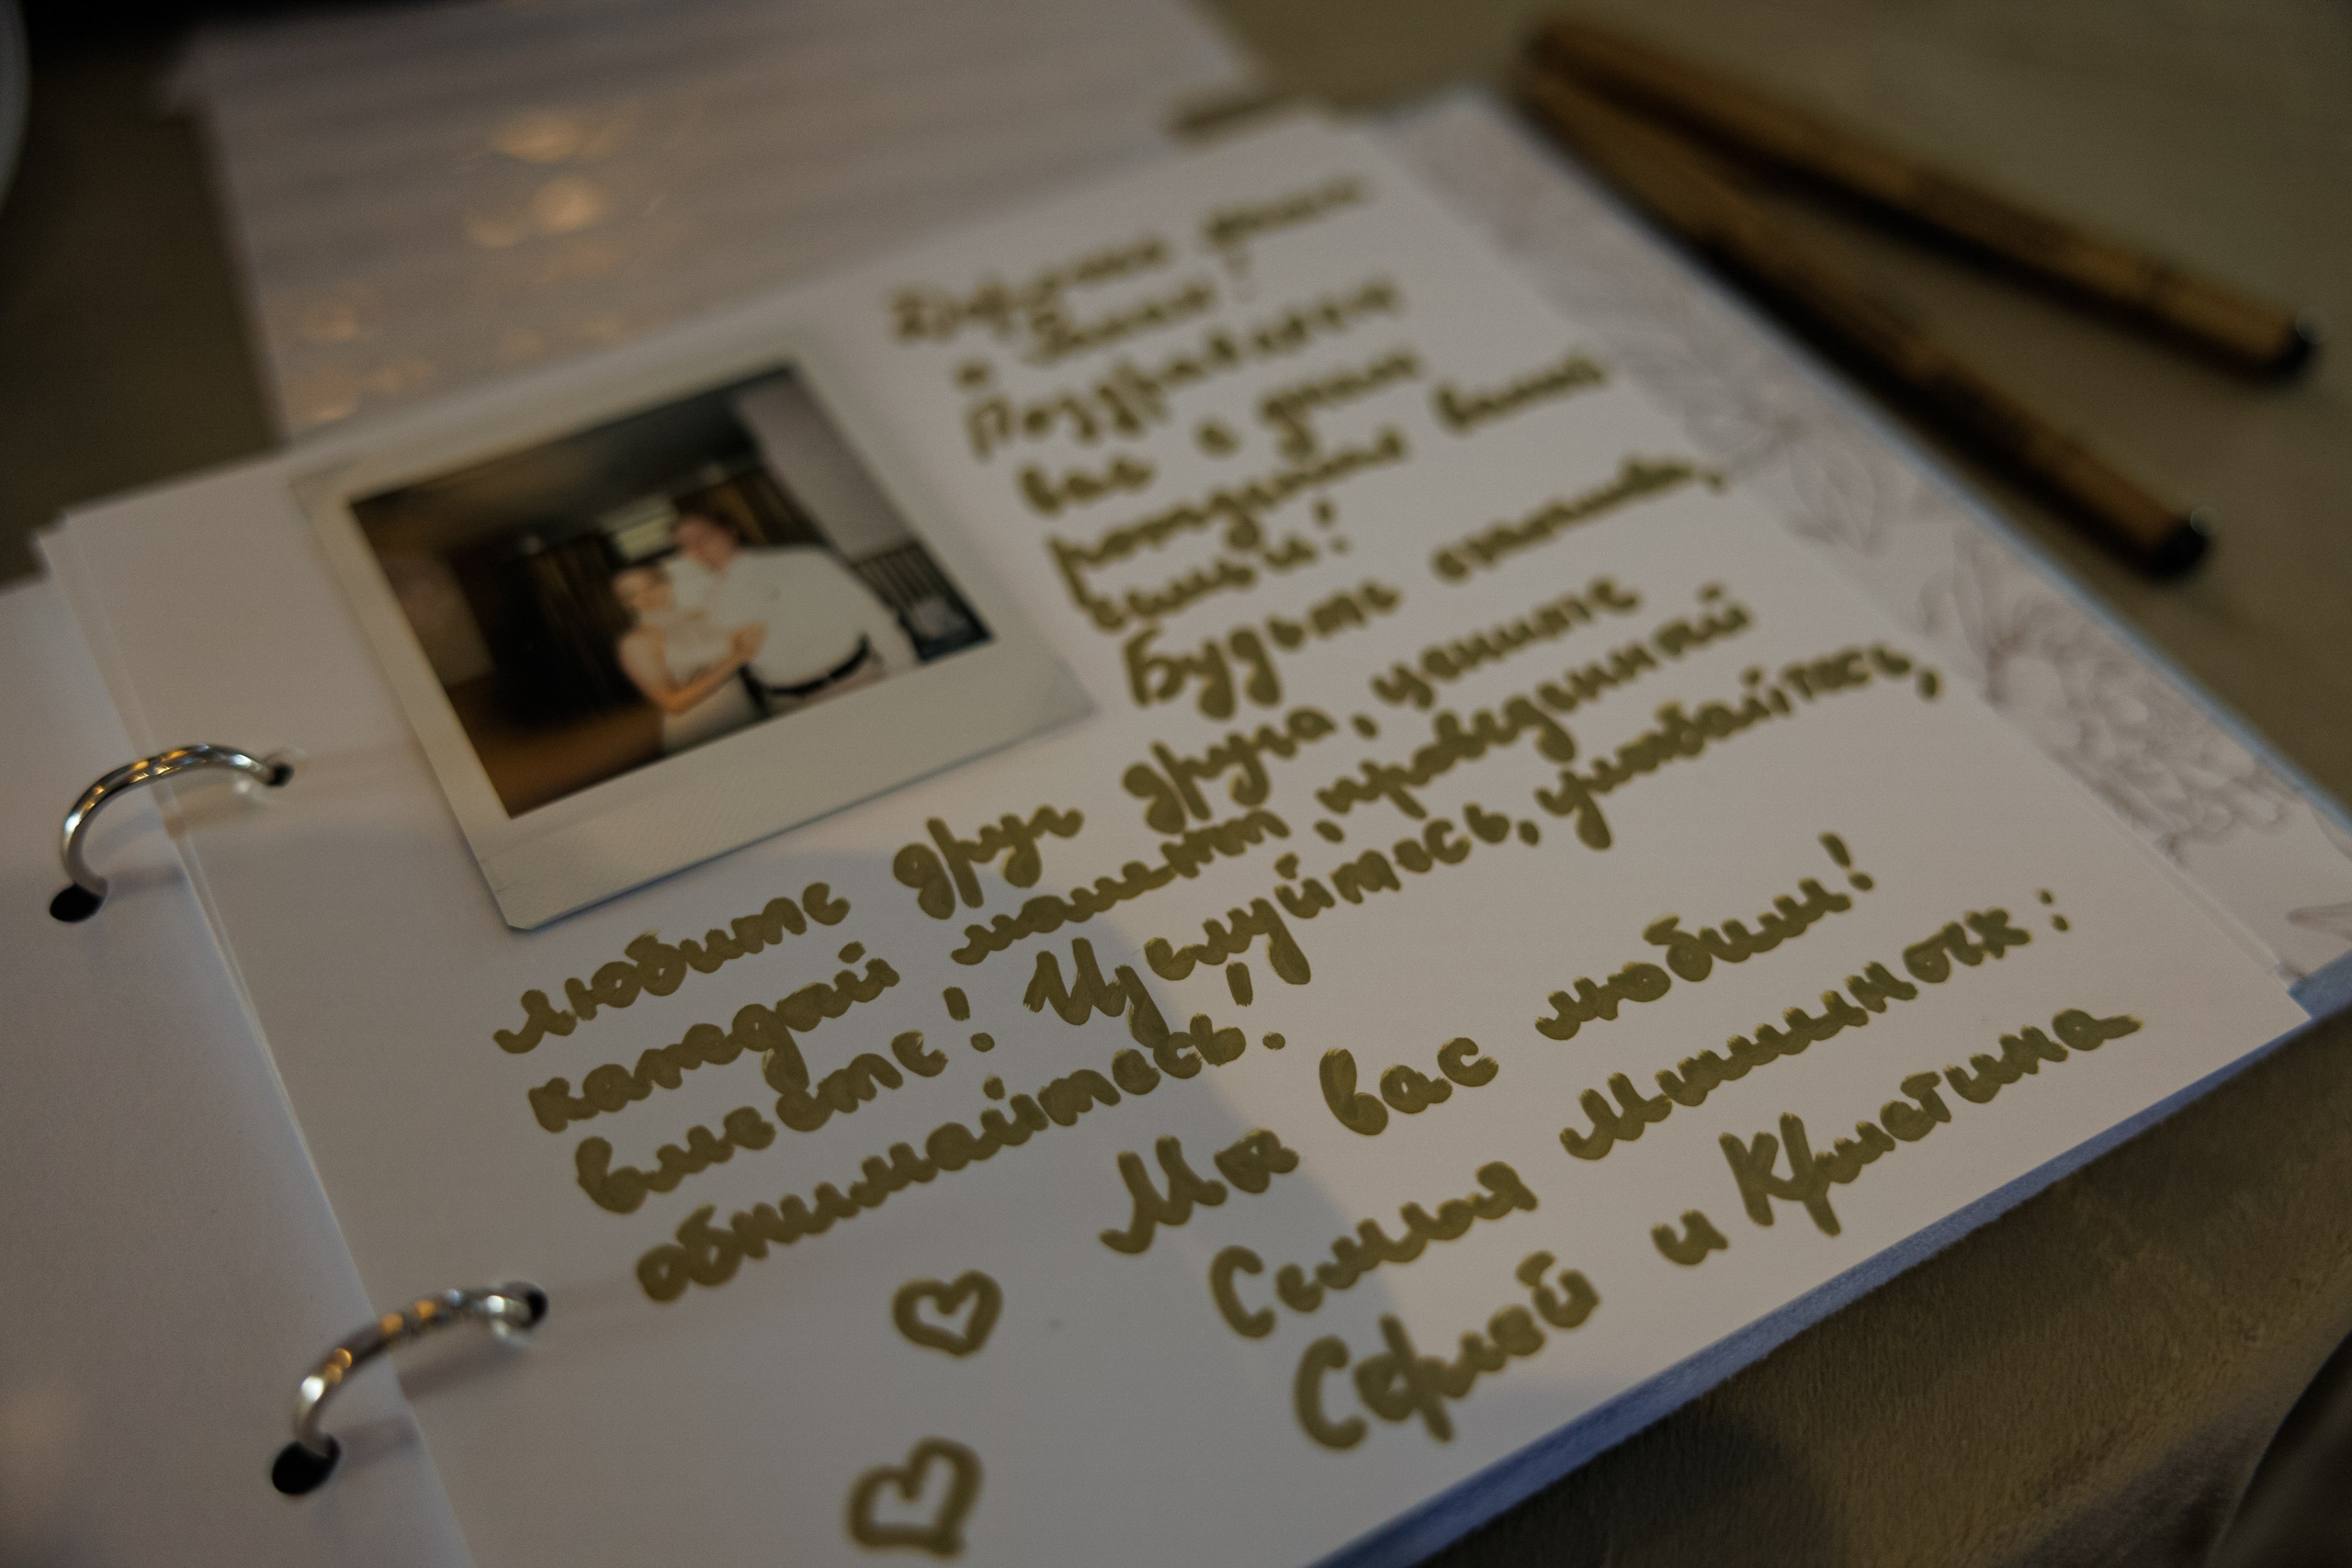 Поздравляем
вас с днём
рождения вашей
семьи!
Будьте счастливы,
любите друг друга, цените
каждый момент, проведенный
вместе! Целуйтесь, улыбайтесь,
обнимайтесь.
Мы вас любим!
Семья Мишиных:
Сергей и Кристина